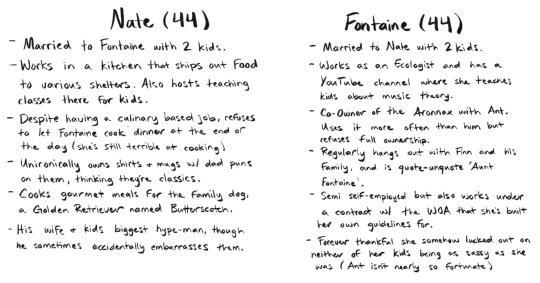 Nate (44)
- Married to Fontaine with 2 kids.
- Works in a kitchen that ships out food
to various shelters. Also hosts teaching
classes there for kids.
- Despite having a culinary based job, refuses
to let Fontaine cook dinner at the end of
the day (she's still terrible at cooking)
- Unironically owns shirts + mugs w/ dad puns
on them, thinking they're classics.
- Cooks gourmet meals for the family dog,
a Golden Retriever named Butterscotch.
- His wife + kids biggest hype-man, though
he sometimes accidentally embarrasses them.
Fontaine (44)
- Married to Nate with 2 kids.
- Works as an Ecologist and has a
YouTube channel where she teaches
kids about music theory.
- Co-Owner of the Aronnax with Ant.
Uses it more often than him but
refuses full ownership.
- Regularly hangs out with Finn and his
family, and is quote-unquote 'Aunt
Fontaine'.
- Semi self-employed but also works under
a contract w/ the WOA that she's built
her own guidelines for.
- Forever thankful she somehow lucked out on
neither of her kids being as sassy as she
was (Ant isn't nearly so fortunate)